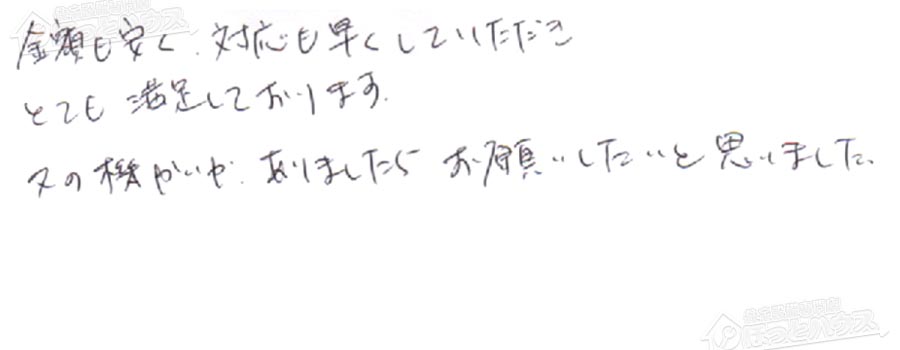 金額も安く、対応も早くしていただき
とても満足しております。
又の機かいが、ありましたら お願いしたいと思いました。
ほっとハウス